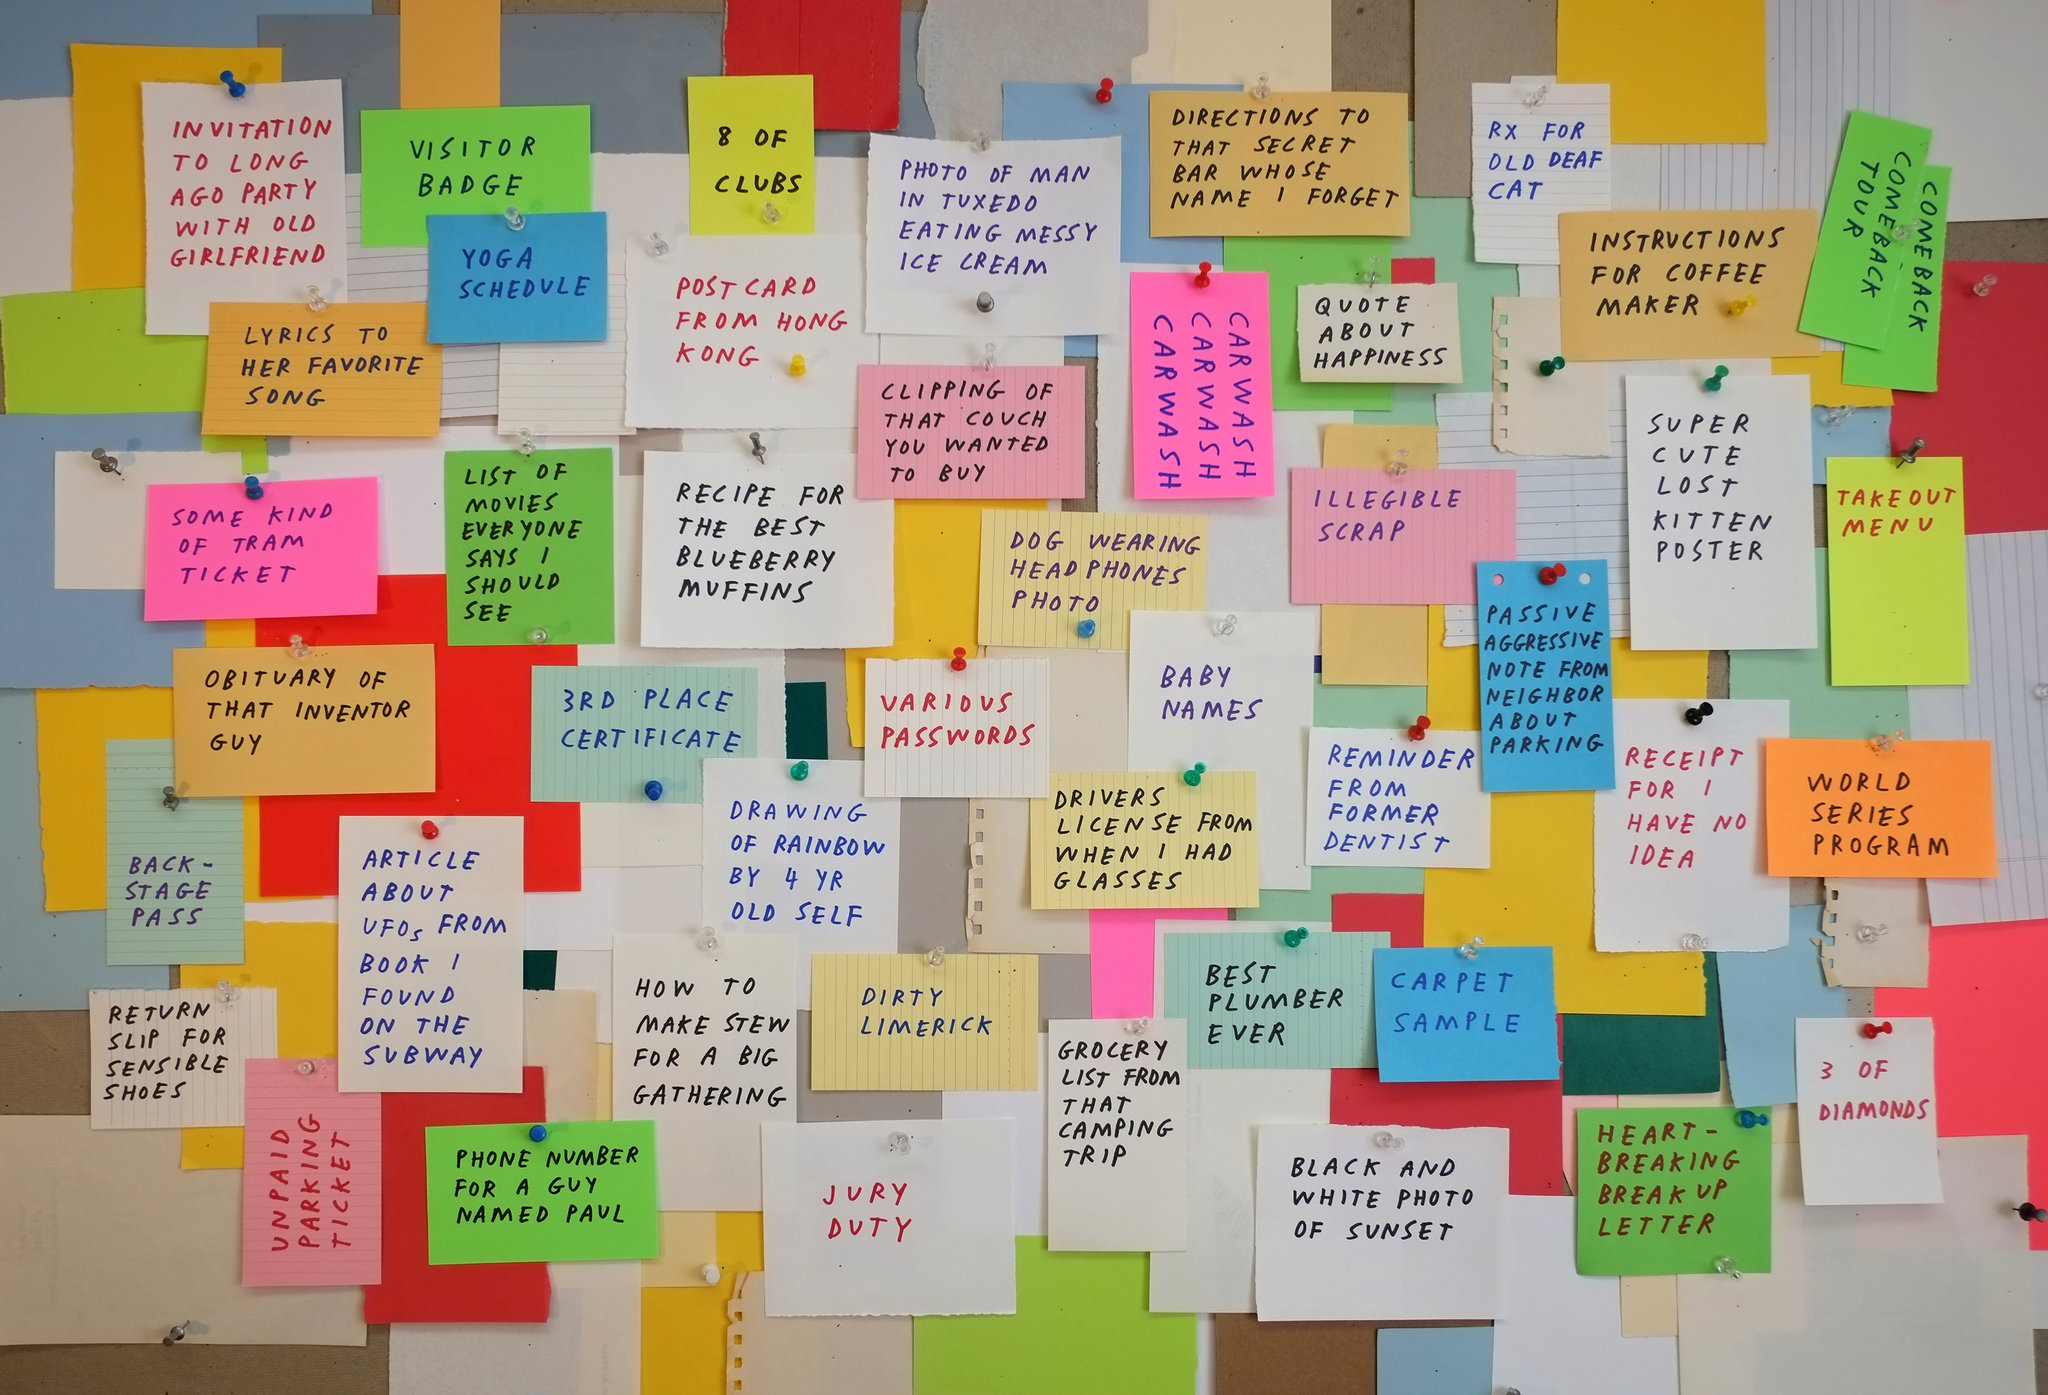 INVITATION
TO LONG
AGO PARTY
WITH OLD
GIRLFRIEND
VISITOR
BADGE
8 OF
CLUBS
PHOTO OF MAN
IN TUXEDO
EATING MESSY
ICE CREAM
DIRECTIONS TO
THAT SECRET
BAR WHOSE
NAME I FORGET
RX FOR
OLD DEAF
CAT
INSTRUCTIONS
FOR COFFEE
MAKER
COMEBACK
COMEBACK
TOUR
YOGA
SCHEDULE
POSTCARD
FROM HONG
KONG
LYRICS TO
HER FAVORITE
SONG
CARWASH
CARWASH
CARWASH
QUOTE
ABOUT
HAPPINESS
CLIPPING OF
THAT COUCH
YOU WANTED
TO BUY
SUPER
CUTE
LOST
KITTEN
POSTER
TAKEOUT
MENU
SOME KIND
OF TRAM
TICKET
LIST OF
MOVIES
EVERYONE
SAYS I
SHOULD
SEE
RECIPE FOR
THE BEST
BLUEBERRY
MUFFINS
DOG WEARING
HEADPHONES
PHOTO
ILLEGIBLE
SCRAP
PASSIVE
AGGRESSIVE
NOTE FROM
NEIGHBOR
ABOUT
PARKING
OBITUARY OF
THAT INVENTOR
GUY
3RD PLACE
CERTIFICATE
VARIOUS
PASSWORDS
BABY
NAMES
REMINDER
FROM
FORMER
DENTIST
RECEIPT
FOR I
HAVE NO
IDEA
WORLD
SERIES
PROGRAM
BACK-
STAGE
PASS
ARTICLE
ABOUT
UFOs FROM
BOOK I
FOUND
ON THE
SUBWAY
DRAWING
OF RAINBOW
BY 4 YR
OLD SELF
DRIVERS
LICENSE FROM
WHEN I HAD
GLASSES
RETURN
SLIP FOR
SENSIBLE
SHOES
HOW TO
MAKE STEW
FOR A BIG
GATHERING
DIRTY
LIMERICK
BEST
PLUMBER
EVER
CARPET
SAMPLE
GROCERY
LIST FROM
THAT
CAMPING
TRIP
3 OF
DIAMONDS
UNPAID
PARKING
TICKET
PHONE NUMBER
FOR A GUY
NAMED PAUL
JURY
DUTY
BLACK AND
WHITE PHOTO
OF SUNSET
HEART-
BREAKING
BREAKUP
LETTER